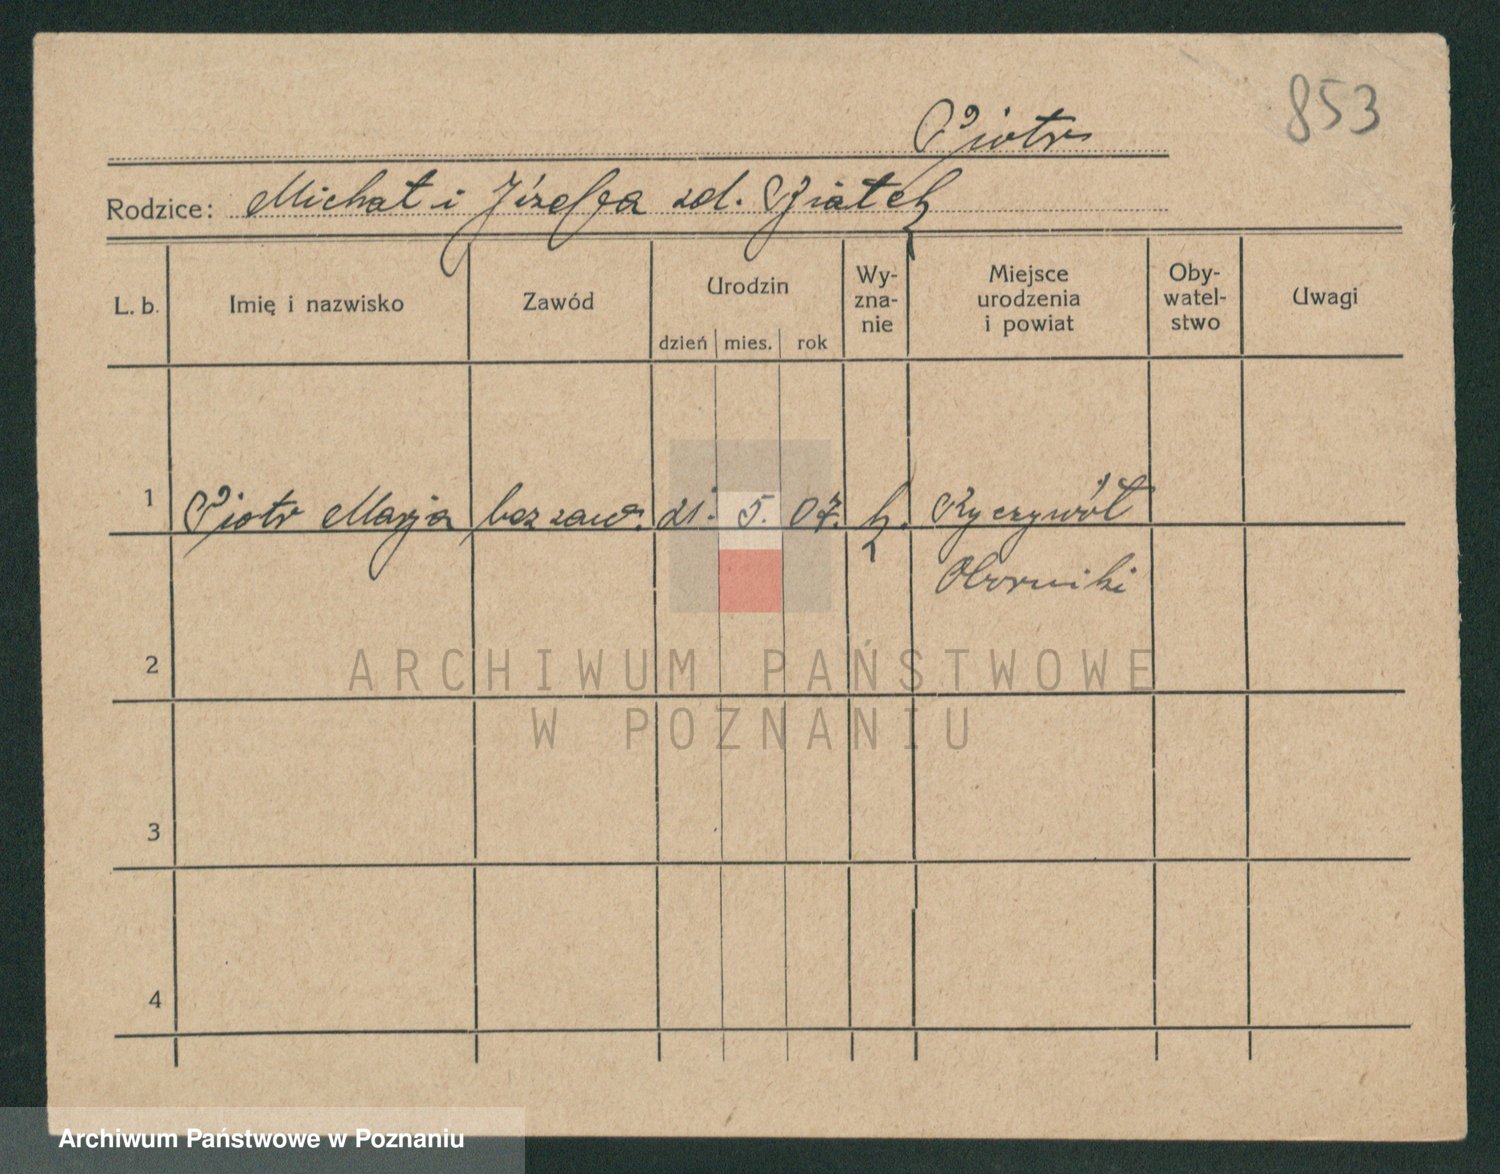 853
Piotr
Rodzice: Michał i Józefa zd. Piątek
L. b. Imię i nazwisko Zawód Urodzin dzień mies. rok Wy-zna-nie Miejsce urodzenia i powiat Oby-watel-stwo Uwagi
1 Piotr Marja bez zaw. 21. 5. 07. k. Ryczywół
Oborniki
2
ARCHIWUM PAŃSTWOWE
W POZNANIU
3
4
Archiwum Państwowe w Poznaniu